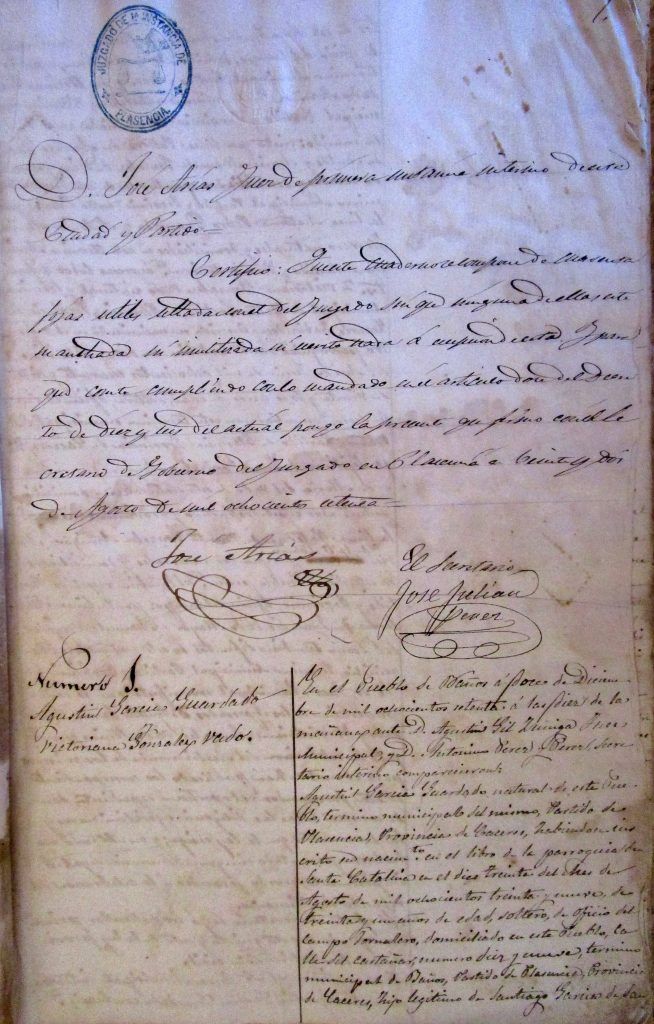 JUZGADO DE 1A INSTANCIA DE
PLASENCIA
D. José Arias Juez de primera instancia interino de esta
Ciudad y Partido=
Certifico: Que este cuaderno se compone de
fojas utiles selladas con el del Juzgado sin que ninguna de ellas este
manchada ni inutilizada ni escrito nada á Y para
que conste cumpliendo con lo mandado en el articulo doce del Decre
to de diez y seis del actual pongo la presente que firmo con el Se
cretario de Gobierno del Juzgado en Plasencia a Veinte y dos
de Agosto de mil ochocientos setenta=
José Arias
El Secretario
Jose Julian
Perez
Numero 1.
Agustin Garcia Guardado
Victoriana Gonzalez vado.
En el Pueblo de Baños á doce de Diciem
bre de mil ochocientos setenta á las diez de la
mañana, ante D. Agustin Gil Zuñiga Juez
Municipal, y D. Antonino Perez y Perez Secre
tario interino comparecieron
Agustin Garcia Guardado natural de este Pue
blo, termino municipal del mismo, Partido de
Plasencia, Provincia de Caceres, habiendose ins
crito su nacimto. en el libro de la parroquia de
Santa Catalina en el dia treinta del mes de
Agosto de mil ochocientos treinta y nueve, de
treinta y un años de edad, soltero, de oficio del
campo Jornalero, domiciliado en este Pueblo, ca
lle del castañar, numero diez y nueve, termino
municipal de Baños, Partido de Plasencia, Provincia
de Caceres, hijo legitimo de Santiago Garcia de San